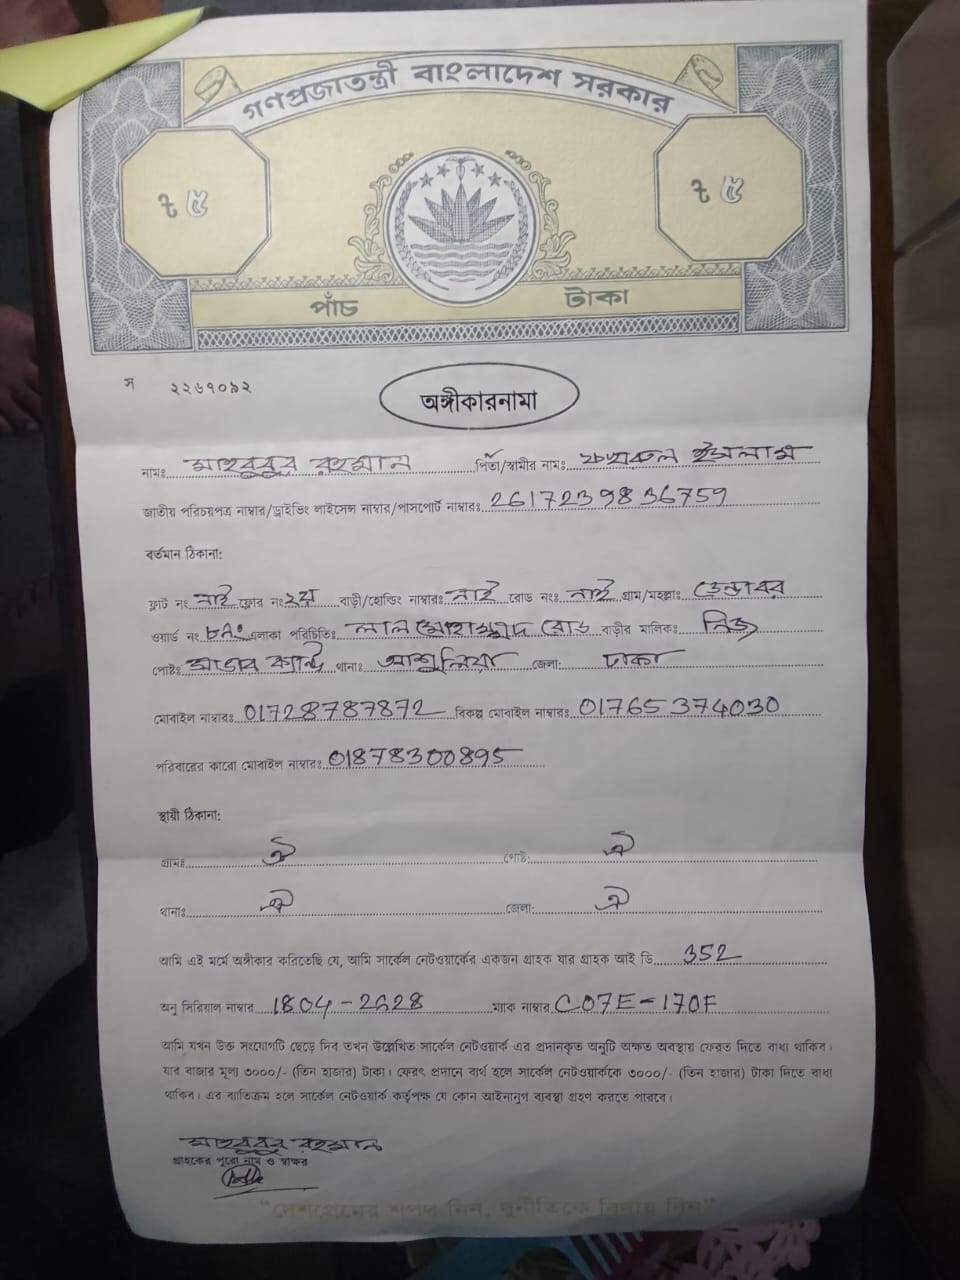 গণপ্রজাতন্ত্রী বাংলাদেশ সরকার
৳ ৫ ৳ ৫
পাঁচ টাকা
স ২২৬৭০৯২
অঙ্গীকারনামা
নামঃ মাহবুবুর রহমান পিতা/স্বামীর নামঃ ফখরুল ইসলাম
জাতীয় পরিচয়পত্র নাম্বার/ড্রাইভিং লাইসেন্স নাম্বার/পাসপোর্ট নাম্বারঃ 2617239836759
বর্তমান ঠিকানা:
ফ্লাট নং নাই ফ্লোর নং ২য় বাড়ী/হোল্ডিং নাম্বারঃ নাই রোড নংঃ নাই গ্রাম/মহল্লাঃ ডেন্ডাবর
ওয়ার্ড নং এলাকা পরিচিতিঃ লাল মোহাম্মদ রোড বাড়ীর মালিকঃ নিজ
পোষ্টঃ থানাঃ আশুলিয়া জেলা: ঢাকা
মোবাইল নাম্বারঃ 01728787872 বিকল্প মোবাইল নাম্বারঃ 01765374030
পরিবারের কারো মোবাইল নাম্বারঃ 01878300895
স্থায়ী ঠিকানা:
গ্রামঃ ঐ পোষ্ট: ঐ
থানাঃ ঐ জেলা: ঐ
আমি এই মর্মে অঙ্গীকার করিতেছি যে, আমি সার্কেল নেটওয়ার্কের একজন গ্রাহক যার গ্রাহক আই ডি 352
অনু সিরিয়াল নাম্বার 1804-2628 ম্যাক নাম্বার C07E-170F
আমি যখন উক্ত সংযোগটি ছেড়ে দিব তখন উল্লেখিত সার্কেল নেটওয়ার্ক এর প্রদানকৃত অনুটি অক্ষত অবস্থায় ফেরত দিতে বাধ্য থাকিব।
যার বাজার মূল্য ৩০০০/- (তিন হাজার) টাকা। ফেরৎ প্রদানে ব্যর্থ হলে সার্কেল নেটওয়ার্ককে ৩০০০/- (তিন হাজার) টাকা দিতে বাধ্য
থাকিব। এর ব্যতিক্রম হলে সার্কেল নেটওয়ার্ক কর্তৃপক্ষ যে কোন আইনানুগ ব্যবস্থা গ্রহণ করতে পারবে।
মাহবুবুর রহমান
গ্রাহকের পুরো নাম ও স্বাক্ষর
"দেশপ্রেমের শপথ নিন, দুর্নীতিকে বিদায় দিন"